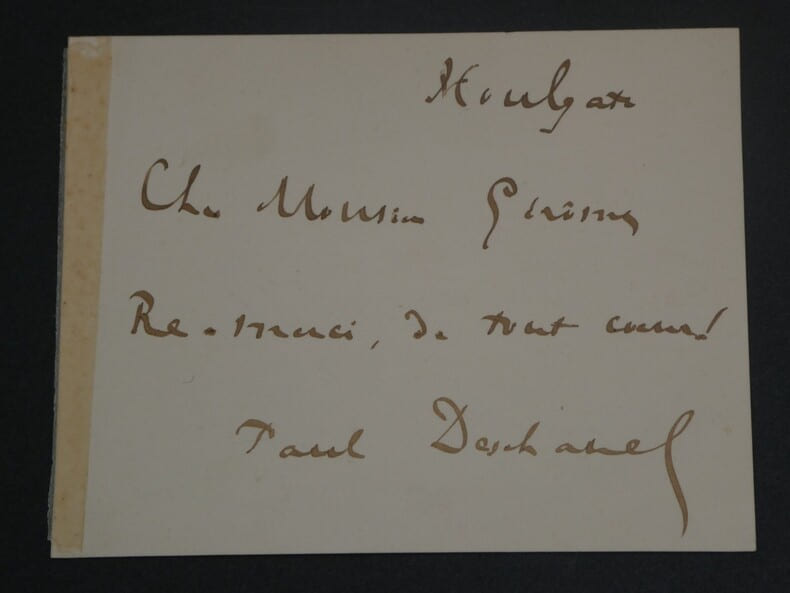 Houlgate
Cher Monsieur Gérôme
Re-merci, de tout coeur!
Paul Deschanel